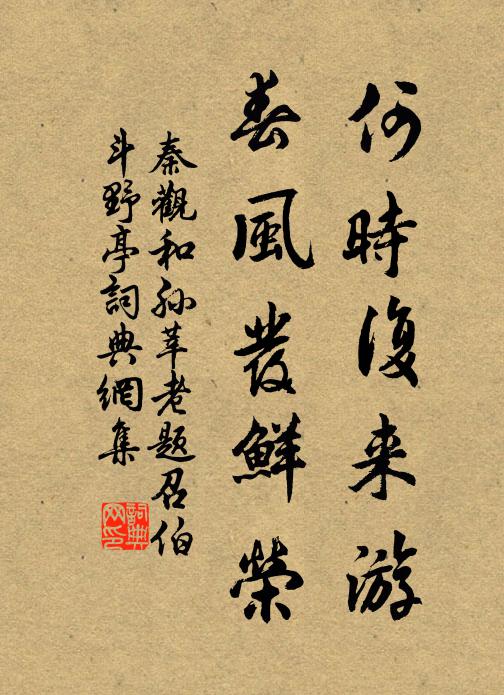 何時復来游
春風發鮮榮
秦觀和孙莘老題召伯
斗野亭詞典網集
詞典网印